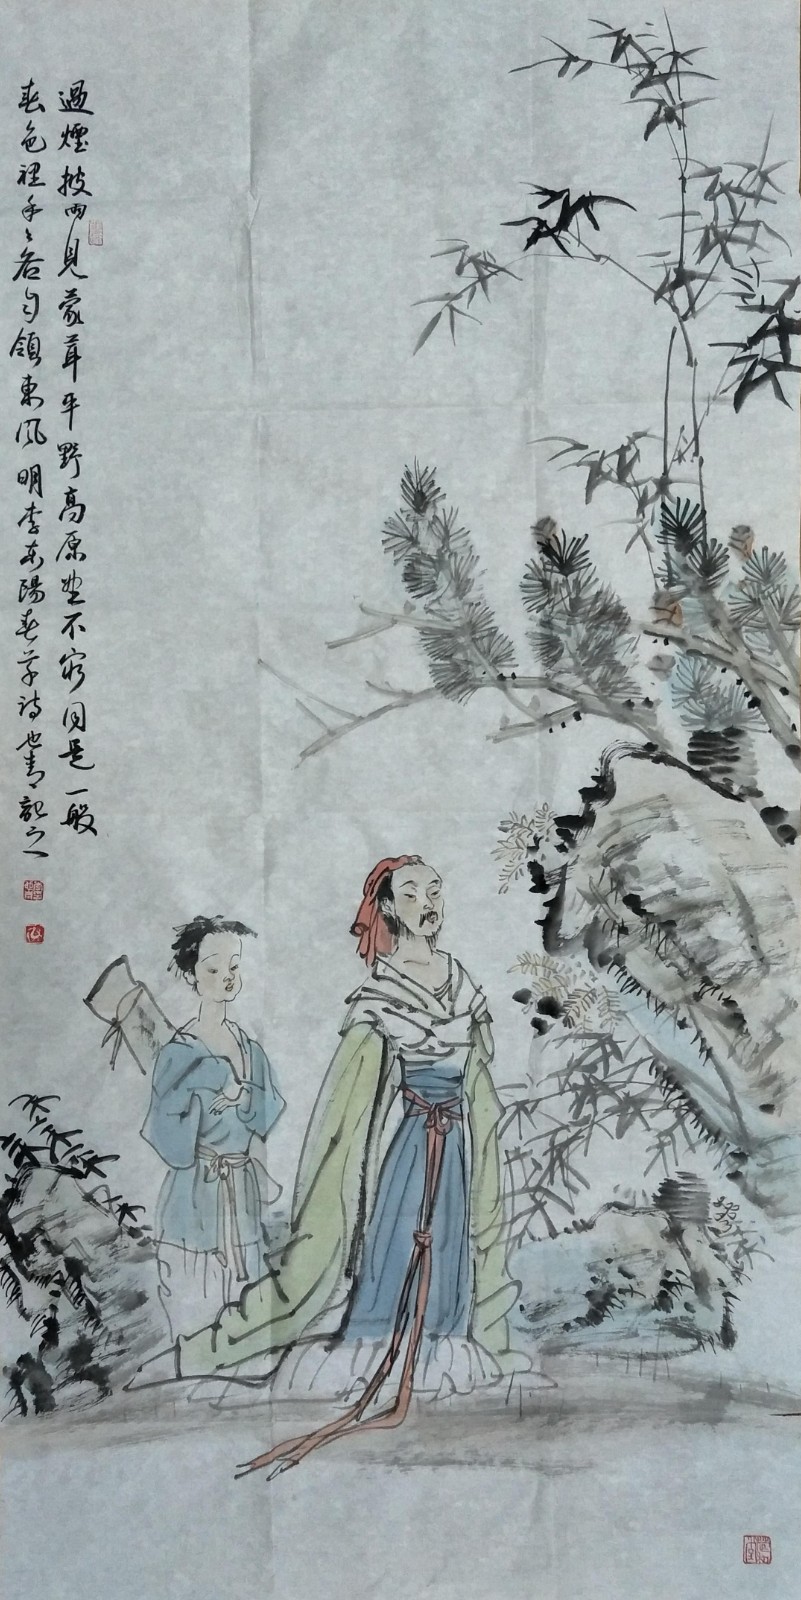 過煙披雨見蒙茸平野高原望不窮同是一般
春色裡年〻各自領東風明李東陽春草詩也青記之